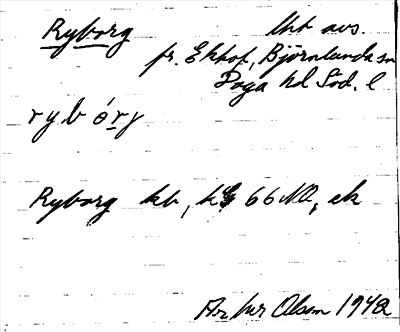 Ryborg lht avs.
fr. Ekhof, Björnlunda sn
Daga hd Söd. l
rybórj
Ryborg kb, kg 66 NO, ek
Artur Olson 1948